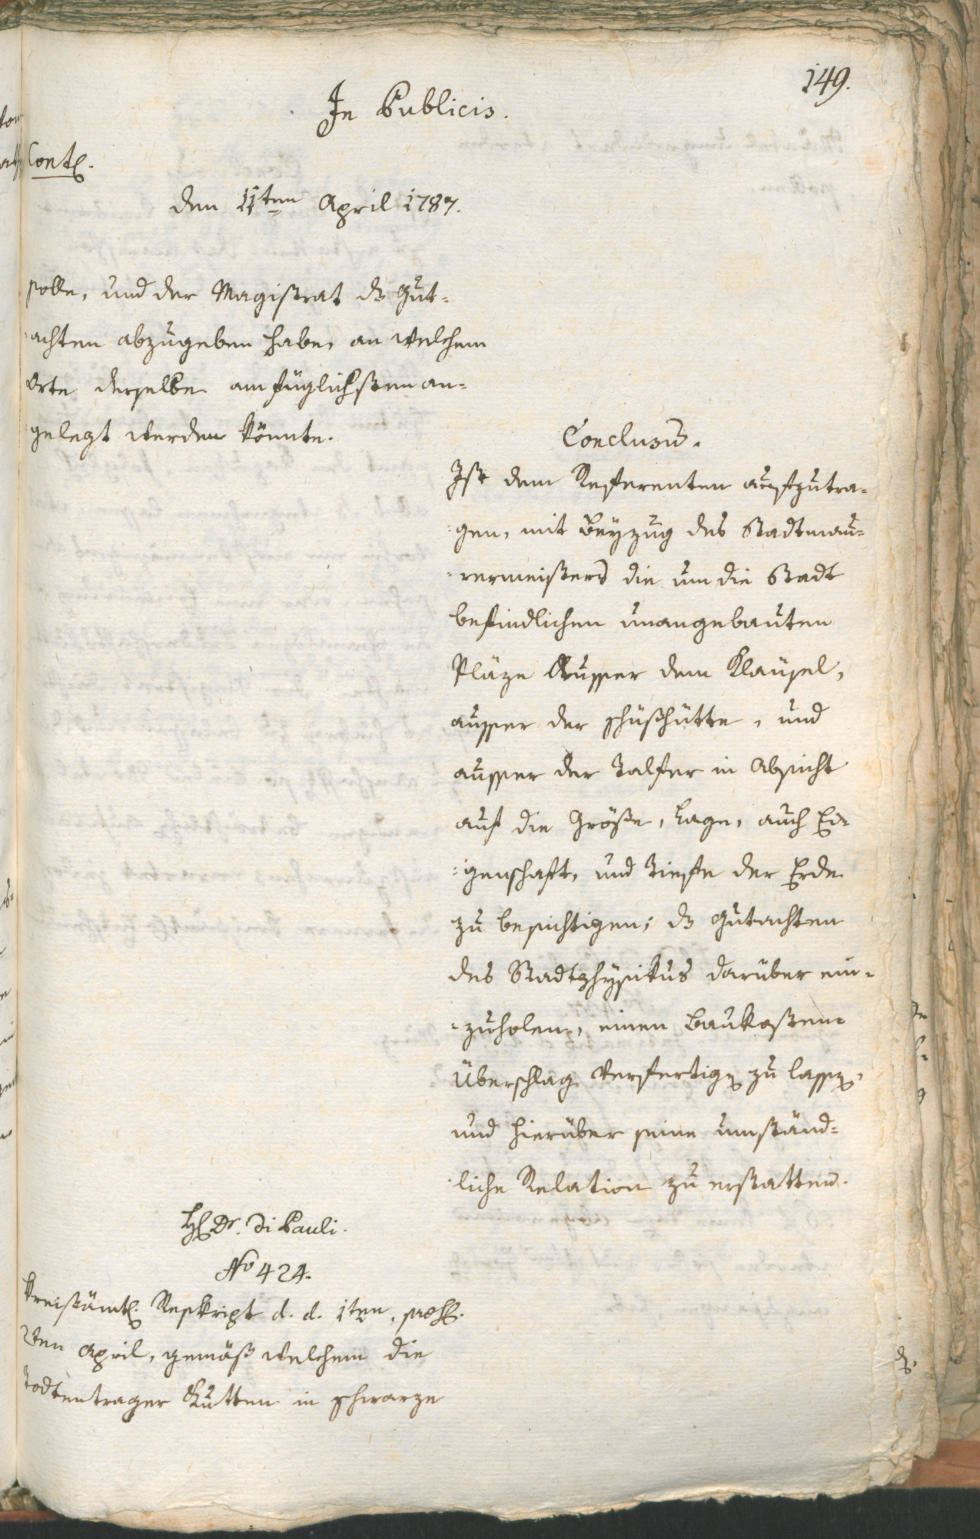 149.
In Publicis.
Cont.
den 11ten April 1787.
solle, und der Magistrat ds Gut-
achten abzugeben habe, an welchem
Orte derselbe am füglichsten an-
gelegt werden könnte.
Conclusum.
Ist dem Referenten aufzutra-
gen, mit Beyzug des Stadtmau-
rermeisters die um die Stadt
befindlichen unangebauten
Pläze ausser dem Klausel,
ausser der schüßhütte, und
ausser der Talfer in Absicht
auf die Größe, Lage, auch Ei-
genschaft, und Tiefte der Erde
zu besichtigen; ds Gutachten
des Stadtphysikus darüber ein-
zuholen, einen Baukosten-
Überschlag verfertigen zu lassen,
und hierüber seine umständ-
liche Relation zu erstatten.
H. Dr. Di Pauli.
No 424.
Kreisämtl. Reskript d. d. 1ten,
April, gemäß welchem die
Todtentrager Kutten in schwarze